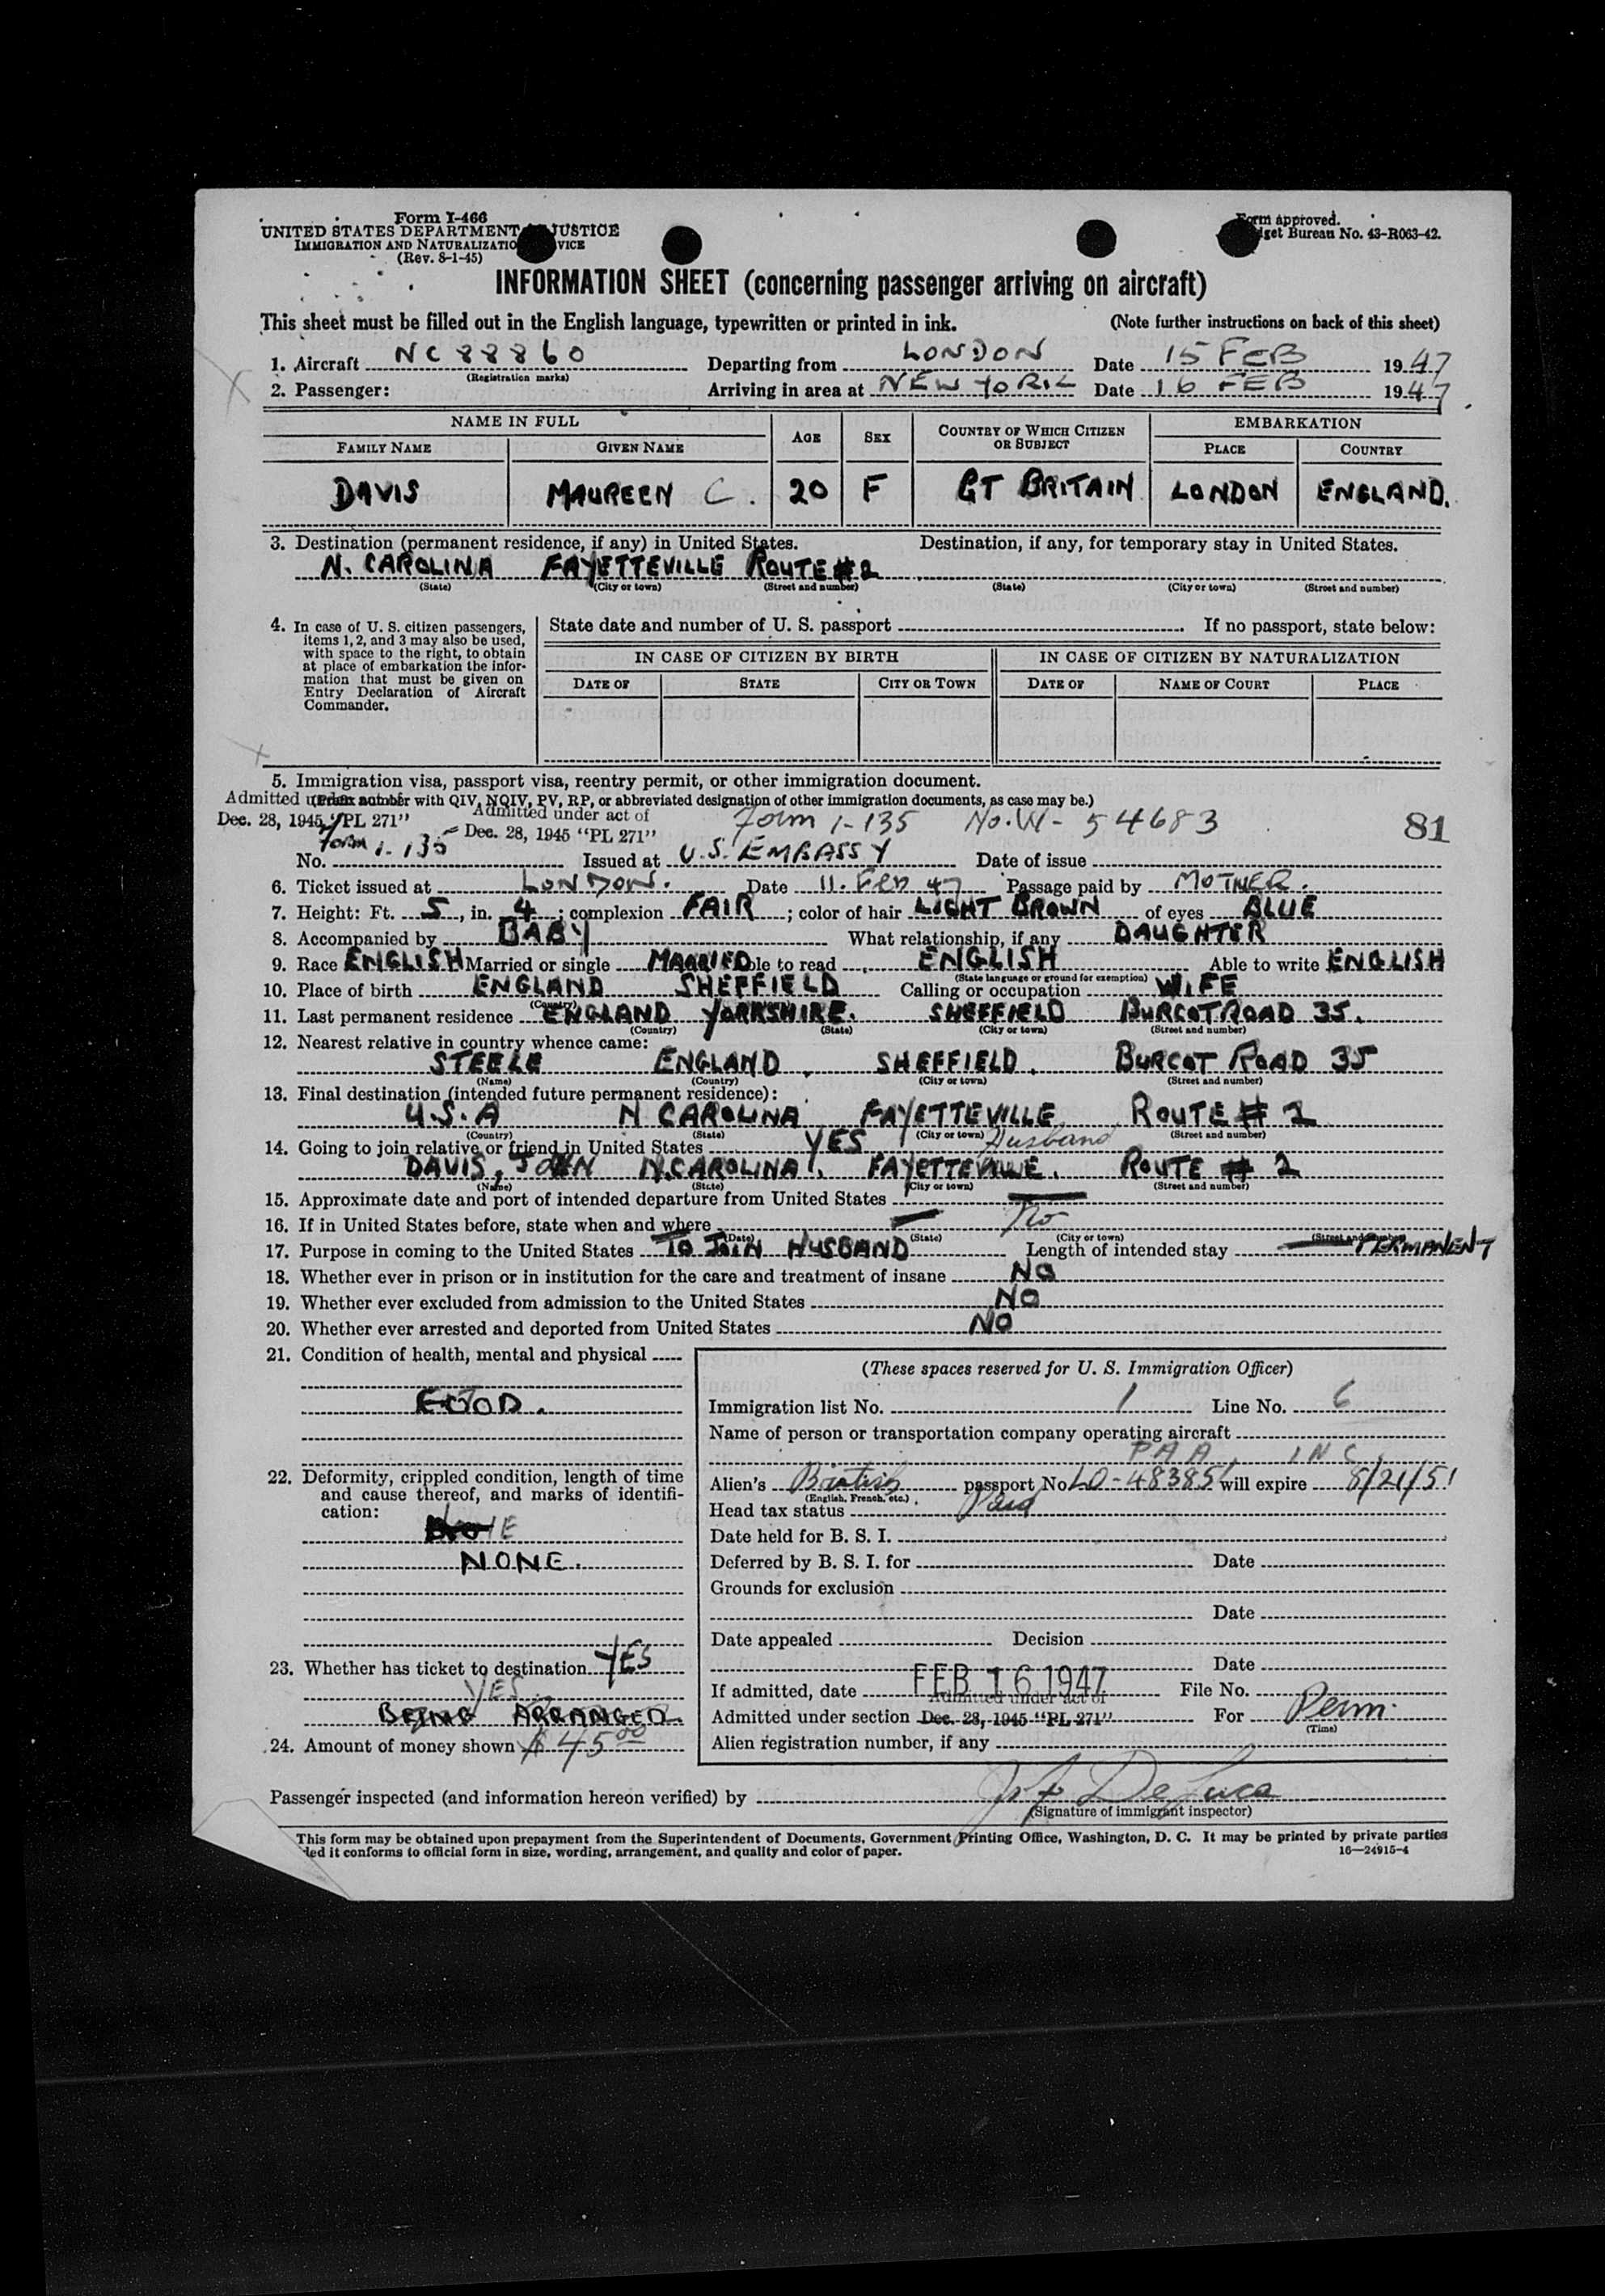 Form I-466
UNITED STATES DEPARTMENT JUSTICE
IMMIGRATION AND NATURALIZATIO VICE
(Rev. 8-1-45)
Form approved.
dget Bureau No. 43-R063-42.
INFORMATION SHEET (concerning passenger arriving on aircraft)
This sheet must be filled out in the English language, typewritten or printed in ink. (Note further instructions on back of this sheet)
1. Aircraft NC 88860 Departing from LONDON Date 15 FEB 1947
(Registration marks)
2. Passenger: Arriving in area at NEW YORK Date 16 FEB 1947
NAME IN FULL AGE SEX COUNTRY OF WHICH CITIZEN OR SUBJECT EMBARKATION
FAMILY NAME GIVEN NAME PLACE COUNTRY
DAVIS MAUREEN C. 20 F GT BRITAIN LONDON ENGLAND.
3. Destination (permanent residence, if any) in United States. Destination, if any, for temporary stay in United States.
N. CAROLINA FAYETTEVILLE ROUTE #2
(State) (City or town) (Street and number) (State) (City or town) (Street and number)
4. In case of U. S. citizen passengers, items 1, 2, and 3 may also be used, with space to the right, to obtain at place of embarkation the information that must be given on Entry Declaration of Aircraft Commander.
State date and number of U. S. passport If no passport, state below:
IN CASE OF CITIZEN BY BIRTH IN CASE OF CITIZEN BY NATURALIZATION
DATE OF STATE CITY OR TOWN DATE OF NAME OF COURT PLACE
5. Immigration visa, passport visa, reentry permit, or other immigration document.
Admitted with QIV, NQIV, PV, RP, or abbreviated designation of other immigration documents, as case may be.)
Dec. 28, 1945, "PL 271" Admitted under act of Dec. 28, 1945 "PL 271" Form 1-135 No. W- 54683 81
Form 1-135
No. Issued at U.S. EMBASSY Date of issue
6. Ticket issued at LONDON. Date 11. Feb 47 Passage paid by MOTHER.
7. Height: Ft. 5, in. 4; complexion FAIR; color of hair LIGHT BROWN of eyes BLUE
8. Accompanied by BABY What relationship, if any DAUGHTER
9. Race ENGLISH Married or single MARRIED ble to read ENGLISH Able to write ENGLISH
(State language or ground for exemption)
10. Place of birth ENGLAND SHEFFIELD Calling or occupation WIFE
(Country)
11. Last permanent residence ENGLAND YORKSHIRE. SHEFFIELD BURCOT ROAD 35.
(Country) (State) (City or town) (Street and number)
12. Nearest relative in country whence came:
STEELE ENGLAND, SHEFFIELD, BURCOT ROAD 35
(Name) (Country) (City or town) (Street and number)
13. Final destination (intended future permanent residence):
U.S.A N CAROLINA FAYETTEVILLE ROUTE # 2
(Country) (State) (City or town) (Street and number)
14. Going to join relative or friend in United States YES Husband
DAVIS, JOHN N.CAROLINA. FAYETTEVILLE. ROUTE # 2
(Name) (State) (City or town) (Street and number)
15. Approximate date and port of intended departure from United States
16. If in United States before, state when and where No
(Date) (State) (City or town) (Street and number)
17. Purpose in coming to the United States TO JOIN HUSBAND Length of intended stay PERMANENT
18. Whether ever in prison or in institution for the care and treatment of insane NO
19. Whether ever excluded from admission to the United States NO
20. Whether ever arrested and deported from United States NO
21. Condition of health, mental and physical
GOOD.
22. Deformity, crippled condition, length of time and cause thereof, and marks of identification:
NONE.
23. Whether has ticket to destination YES
YES
BEING ARRANGED.
24. Amount of money shown $45 00
(These spaces reserved for U. S. Immigration Officer)
Immigration list No. 1 Line No. 6
Name of person or transportation company operating aircraft
PAA INC.
Alien's British passport No LO-483851 will expire 8/21/51
(English, French, etc.)
Head tax status Paid
Date held for B. S. I.
Deferred by B. S. I. for Date
Grounds for exclusion
Date
Date appealed Decision
Date
If admitted, date FEB 16 1947 File No.
Admitted under act of
Admitted under section Dec. 28, 1945 "PL 271" For Perm.
(Time)
Alien registration number, if any
Passenger inspected (and information hereon verified) by De Luca
(Signature of immigrant inspector)
This form may be obtained upon prepayment from the Superintendent of Documents, Government Printing Office, Washington, D. C. It may be printed by private parties
ded it conforms to official form in size, wording, arrangement, and quality and color of paper. 16—24915-4